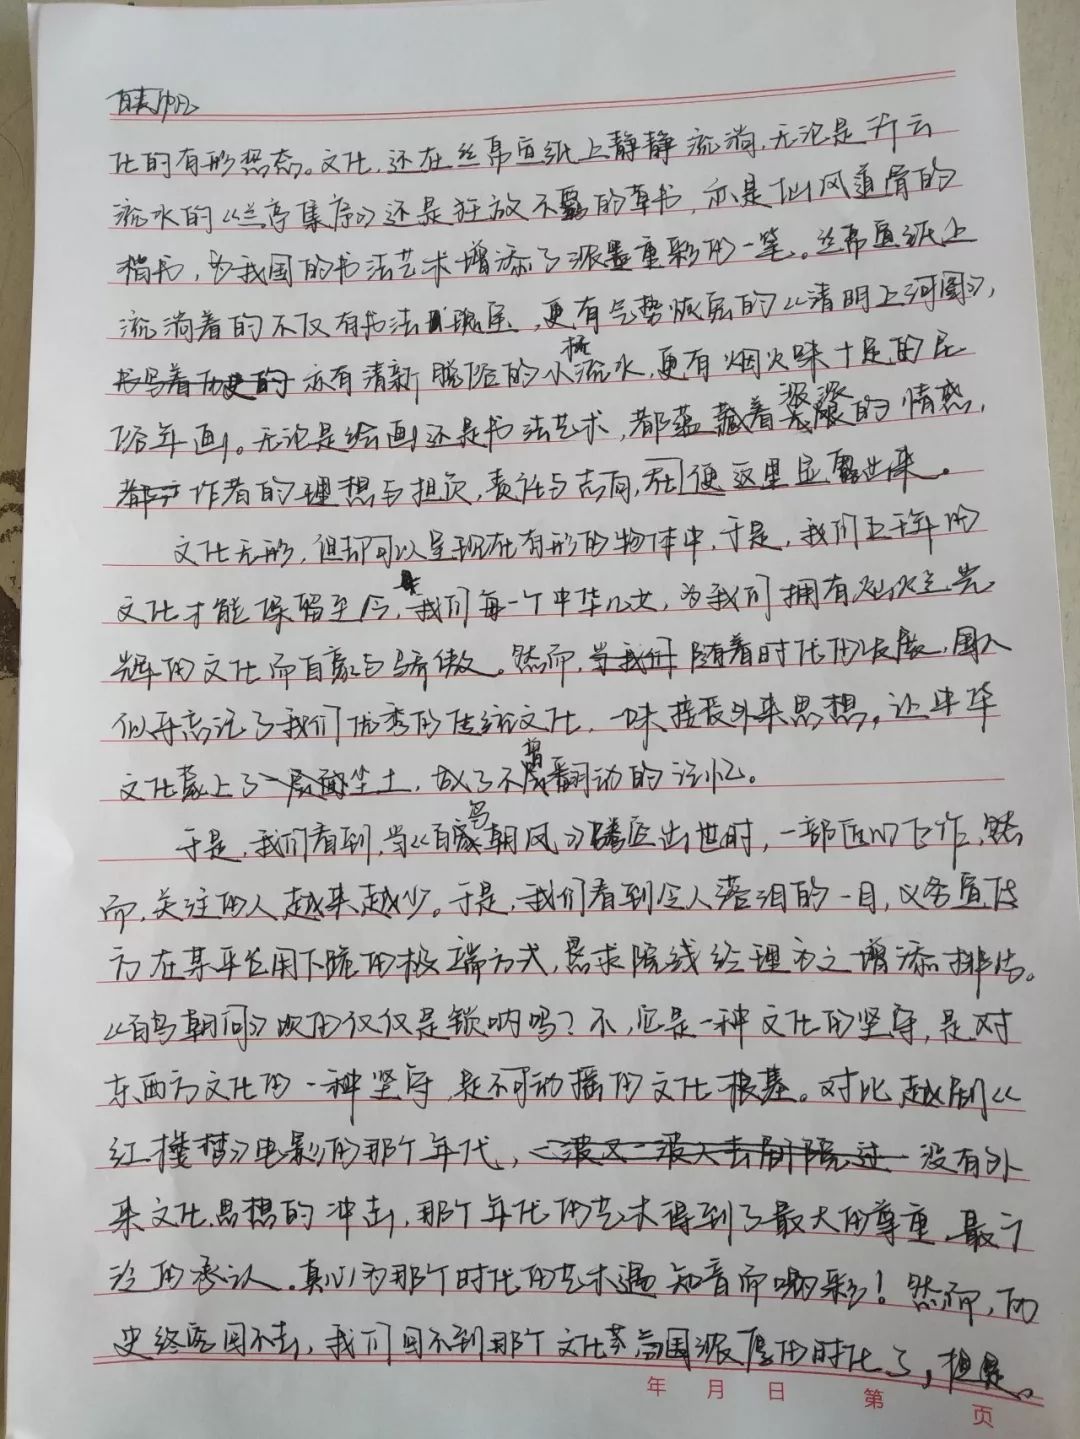 化的有形想态。文化，还在丝帛宣纸上静静流淌，无论是行云
流水的《兰亭集序》还是狂放不羁的草书，亦是仙风道骨的
楷书，为我国的书法艺术增添了浓墨重彩的一笔。丝帛宣纸上
流淌着的不仅有书法瑰宝，更有气势恢宏的《清明上河图》，
书写着历史的亦有清新脱俗的小桥流水，更有烟火味十足的民
俗年画。无论是绘画还是书法艺术，都蕴藏着深深的情感，
作者的理想与担忧，责任与志向，便这里显露出来。
文化无形，但却可以呈现在有形的物体中，于是，我们五千年的
文化才能保留至今，我们每一个中华儿女，为我们拥有如此之光
辉的文化而自豪与骄傲。然而，当我们随着时代的发展，国人
似乎忘记了我们优秀的传统文化，一味接受外来思想，让中华
文化蒙上了一层尘土，成了不曾翻动的记忆。
于是，我们看到，当《百鸟朝凤》匠出世时，一部匠心之作，然
而，关注的人越来越少。于是，我们看到令人落泪的一目，义务宣传
方在某平台用下跪的极端方式，恳求院线经理为之增添排片。
《百鸟朝凤》吹的仅仅是锁呐吗？不，它是一种文化的坚守，是对
东西方文化的一种坚守，是不可动摇的文化根基。对比越剧《
红楼梦》电影的那个年代，一波又一波人去剧院过没有外
来文化思想的冲击，那个年代的艺术得到了最大的尊重，最广
泛的承认。真心为那个时代的艺术遇知音而喝彩！然而，历
史终究回不去，我们回不到那个文化氛围浓厚的时代了，但是。
年 月 日 第 页